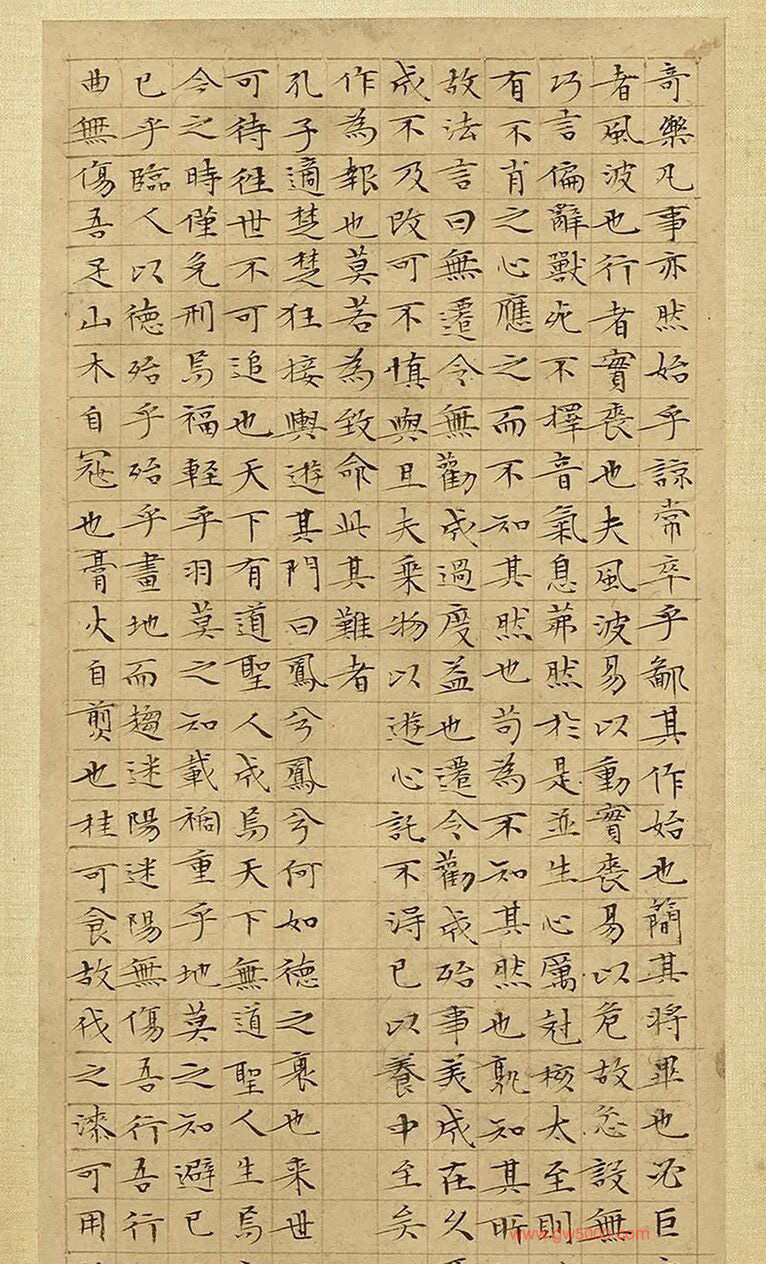 奇樂凡事亦然始乎諒常卒乎鄙其作始也簡其將畢也必巨
者風波也行者實喪也夫風波易以動實喪易以危故忿設無
巧言偏辭獸死不擇音氣息茀然於是並生心厲尅核太至則
有不肖之心應之而不知其然也苟為不知其然也孰知其所
故法言曰無遷令無勸成過度益也遷令勸成殆事美成在久
成不及改可不慎與且夫乘物以遊心託不得已以養中至矣
作為報也莫若為致命此其難者
孔子適楚楚狂接輿遊其門曰鳳兮鳳兮何如德之衰也来世
可待往世不可追也天下有道聖人成焉天下無道聖人生焉
今之時僅免刑焉福輕乎羽莫之知載禍重乎地莫之知避已
已乎臨人以德殆乎殆乎畫地而趨迷陽迷陽無傷吾行吾行
曲無傷吾足山木自寇也膏火自煎也桂可食故伐之漆可用